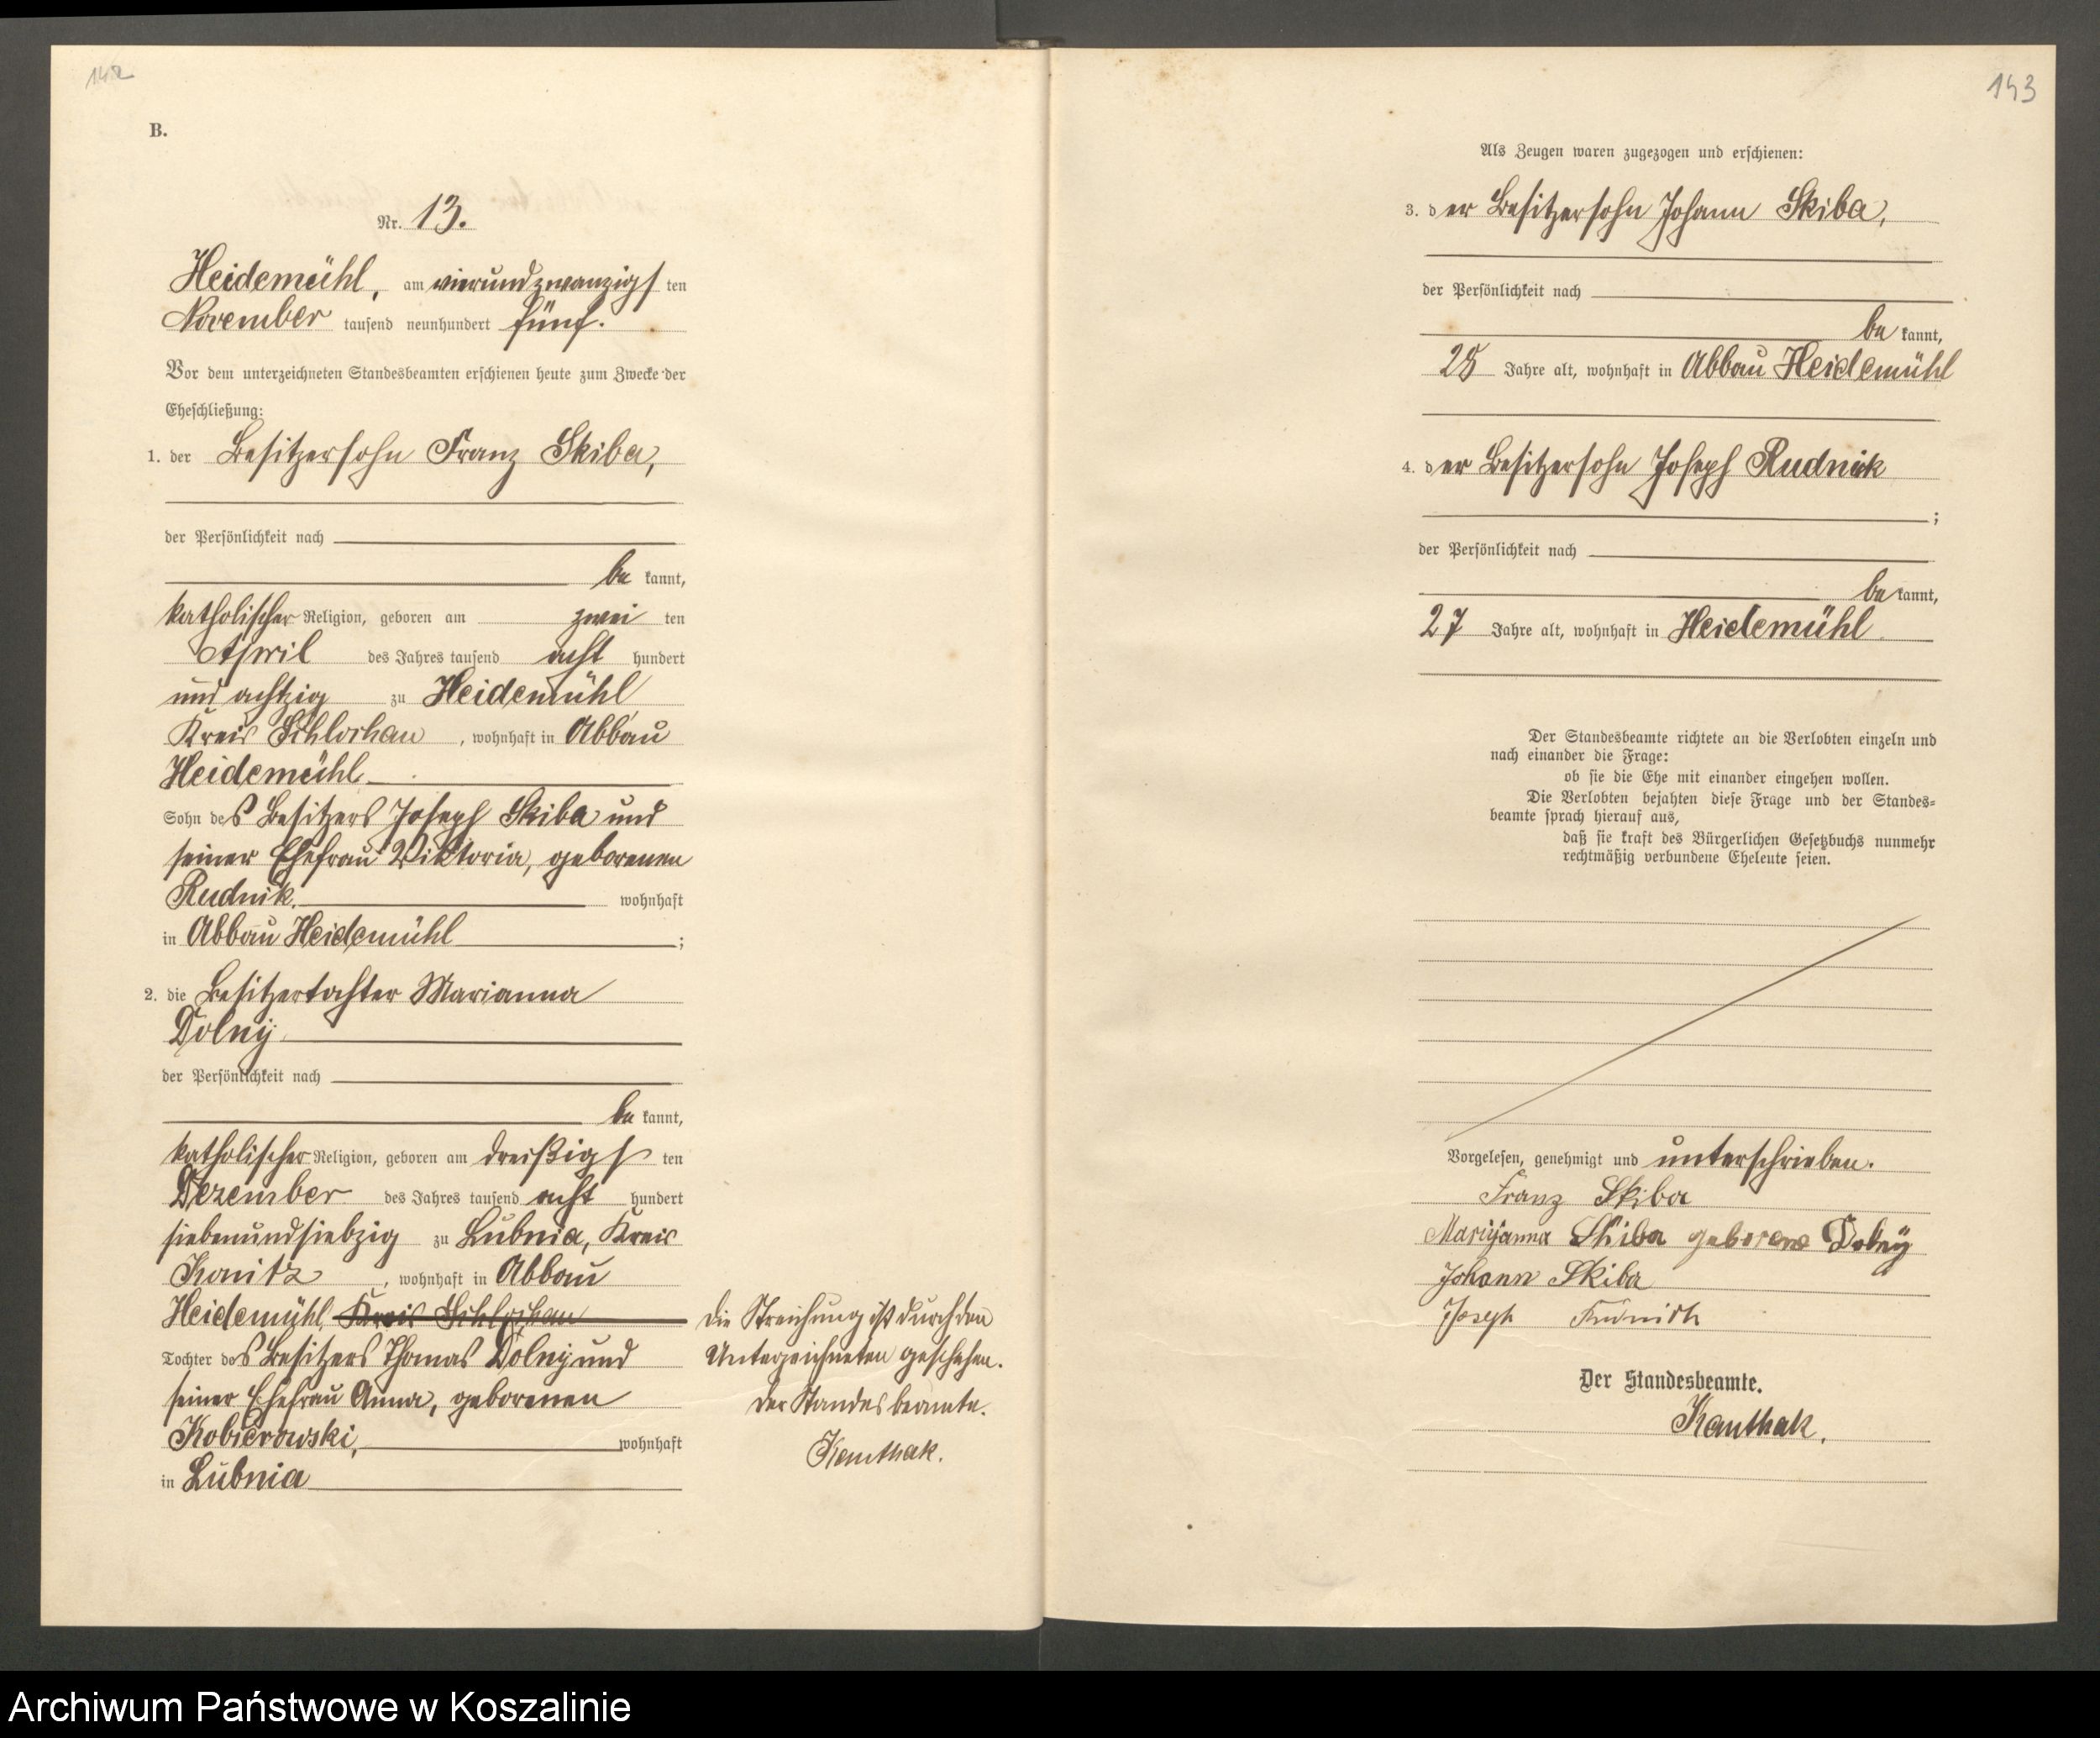 142
B.
Nr. 13.
Heidemühl, am vierundzwanzigsten
November tausend neunhundert fünf.
Vor dem unterzeichneten Standesbeamten erschienen heute zum Zwecke der
Eheschließung:
1. der Besitzersohn Franz Skiba,
der Persönlichkeit nach
be kannt,
katholischer Religion, geboren am zwei ten
April des Jahres tausend acht hundert
und achtzig zu Heidemühl
Kreis Schlochau, wohnhaft in Abbau
Heidemühl
Sohn des Besitzers Joseph Skiba und
seiner Ehefrau Wiktoria, geborenen
Rudnik. wohnhaft
in Abbau Heidemühl ;
2. die Besitzertochter Marianna
Dolny
der Persönlichkeit nach
be kannt,
katholischer Religion, geboren am dreißigsten
Dezember des Jahres tausend acht hundert
siebenundsiebzig zu Lubnia, Kreis
Konitz, wohnhaft in Abbau
Heidemühl, Kreis Schlochau
Tochter des Besitzers Thomas Dolny und
seiner Ehefrau Anna, geborenen
Kobierowski, wohnhaft
in Lubnia
Die Streichung ist durch den
Unterzeichneten geschehen.
Der Standesbeamte.
Kanthak.
143
Als Zeugen waren zugezogen und erschienen:
3. der Besitzersohn Johann Skiba,
der Persönlichkeit nach
be kannt,
25 Jahre alt, wohnhaft in Abbau Heidemühl
4. der Besitzersohn Joseph Rudnik
;
der Persönlichkeit nach
be kannt,
27 Jahre alt, wohnhaft in Heidemühl
Der Standesbeamte richtete an die Verlobten einzeln und
nach einander die Frage:
ob sie die Ehe mit einander eingehen wollen.
Die Verlobten bejahten diese Frage und der Standes-
beamte sprach hierauf aus,
daß sie kraft des Bürgerlichen Gesetzbuchs nunmehr
rechtmäßig verbundene Eheleute seien.
Vorgelesen, genehmigt und unterschrieben.
Franz Skiba
Mariyanna Skiba geborene Dolny
Johann Skiba
Joseph
Der Standesbeamte.
Kanthak.
Archiwum Państwowe w Koszalinie